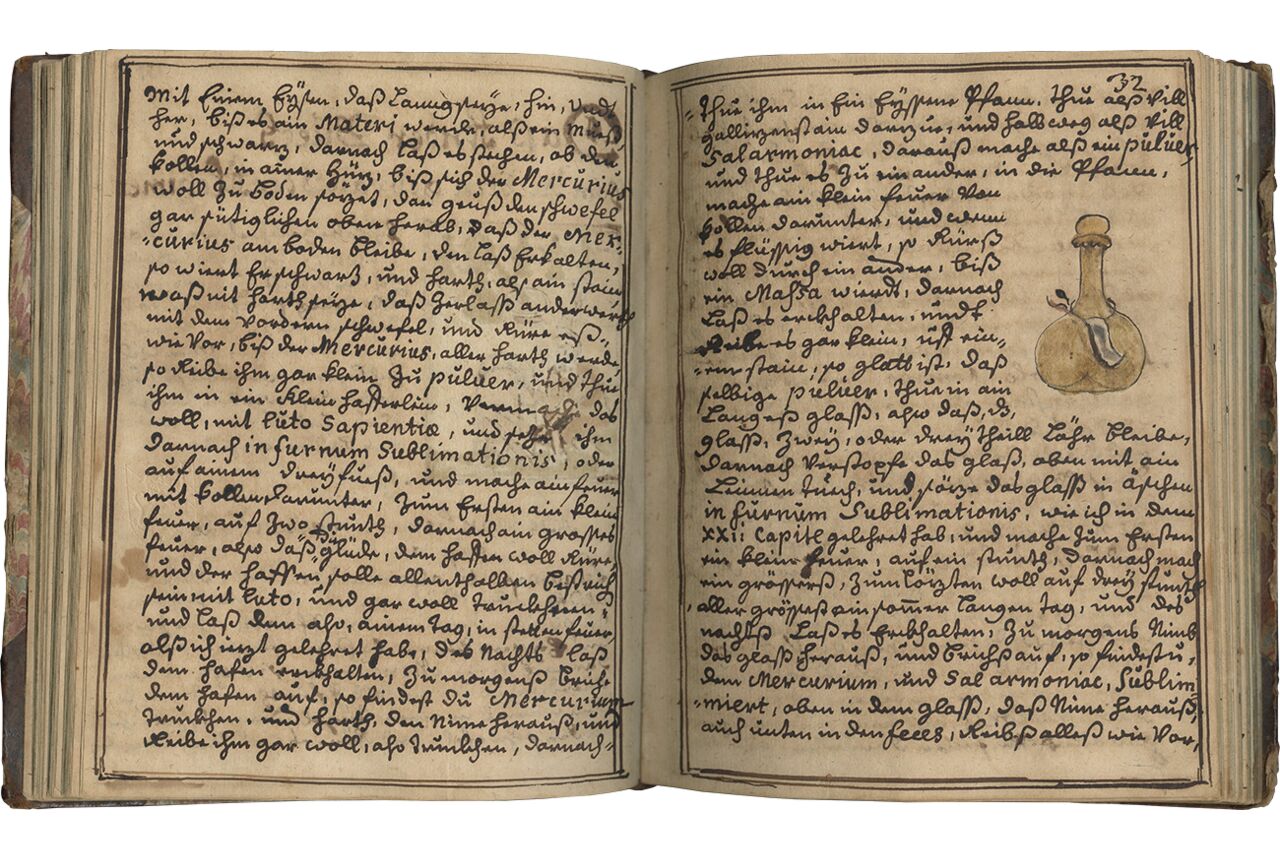 Mit Einem Eÿsen, daß Lanngseÿe, hin, Vndt
her, biß es ain Materi werde, alß ein Mueß,
und schwarz, darnach laß es stehen, ob den
kollen, in ainer Hüz, biß sich der Mercurius
woll zu boden sözet, dan geuß den schwefel
gar sütiglichen oben herab, daß der Mer-
-curius am boden bleibe, den laß Erkalten,
so wiert Er schwarz, und harth, alß ain stain
waß nit harth seÿe, daß zerlaß anderwerth
mit dem Vordern schwefel, und Rüre eß
wie Vor, biß der Mercurius, aller harth werde,
so Reibe ihm gar klein zu puluer, und thue
ihm in ein klein hafferlein, Vermache das
woll, mit luto Sapientiæ, und seze ihm
darnach in furnum Sublimationis, oder
auf ainem dreÿfueß, und mache ain feuer
mit kollen darunter, zum Ersten ain klein
feuer, auf zwo stunth, darnach ain grosses
feuer, also daß glüde, dem haffen woll Rüre,
und der haffen solle allenthalben bestrich
sein mit luto, und gar woll Truckhenen,
und laß dem also, ainem Tag, in stetten feuer,
alß ich iezt gelehret habe, des Nachts laß
dem hafen erckhalten, zu morgenß brich
dem hafen auf, so findest du Mercurium
Truckhen, und harth, den Nime herauß, und
Reibe ihm gar woll, also Truckhen, darnach-
32
-Thue ihm in Ein Eÿssene Pfann, Thue alß Vill
gallizenstain darzue, und halb weg alß Vill
Salarmoniac, darauß mache alß ein puluer,
und thue es zu ein ander, in die Pfann,
mache ain klein feuer Von
kollen darunter, und wenn
es flüssig wiert, so Rürß
woll durch ein ander, biß
ein Massa wierdt, darnach
laß es erckhalten, undt
Reibe es gar klein, uff ein-
-em stain, so glatt ist, daß
selbige puluer, thue in ain
Langeß glaß, also daß, dz
glaß, zweÿ, oder dreÿ theill lähr bleibe,
darnach Verstopfe das glaß, oben mit ain
Leinnen tuech, und söze das glaß in äschen
in furnum Sublimationis, wie ich in dem
XXi: Capitl gelehret hab, und mache zum Ersten
ein klein feuer, auf ein stunth, darnach mach
ein grösserß, zum lözten woll auf dreÿ stunth
aller grösseß ein sommer langen Tag, und des
nachtß laß es Erckhalten, zu morgens Nimb
das glaß herauß, und brichß auf, so findestu,
dem Mercurium, und Sal armoniac, Sublim
-miert, oben in dem glaß, daß Nime herauß,
auch unten in den feces, Reibß alleß wie Vor,